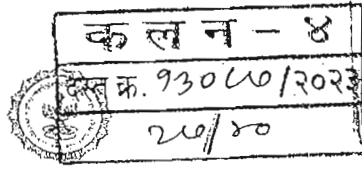 क ल न - ४
दस्त क्र. १३०८७/२०२३
२७/४०